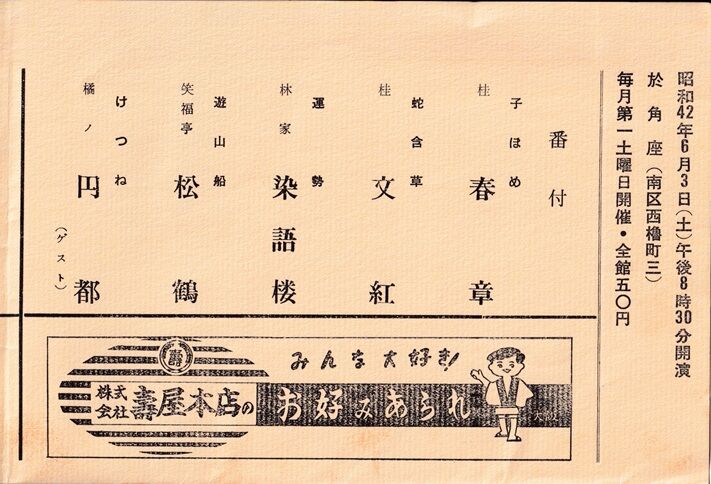 昭和42年6月3日(土)午後8時30分開演
於角座(南区西櫓町三)
毎月第一土曜日開催・全館五〇円
番付
子ほめ
桂春章
蛇含草
桂文紅
運勢
林家染語楼
遊山船
笑福亭松鶴
けつね
橘ノ円都
(ゲスト)
みんな大好き!
壽
株式会社壽屋本店の
お好みあられ